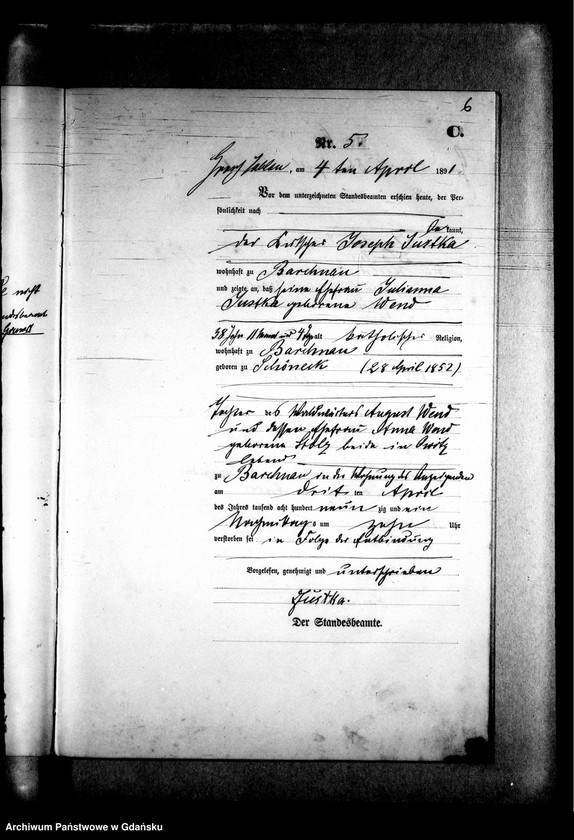 6
C.
Nr. 5.
am 4 ten April 1891.
Vor dem unterzeichneten Standesbeamten erschien heute, der Per-
sönlichkeit nach
be kannt,
der Kutscher Joseph Justka
wohnhaft zu Barchnau
und zeigte an, daß seine Ehefrau Julianna
Justka geborene Wend
38 Jahr 11 Monat und 4 Tage alt katholischer Religion,
wohnhaft zu Barchnau
geboren zu Schöneck (28 April 1852)
Tochter des Waldwärters August Wend
und dessen Ehefrau Anna Wend
geborene beide in
lebend
zu Barchnau in der Wohnung des Anzeigenden
am dritten April
des Jahres tausend acht hundert neunzig und ein
Nachmittags um zehn Uhr
verstorben sei in Folge der Entbindung
Vorgelesen, genehmigt und unterschrieben
Justka.
Der Standesbeamte.
Archiwum Państwowe w Gdańsku